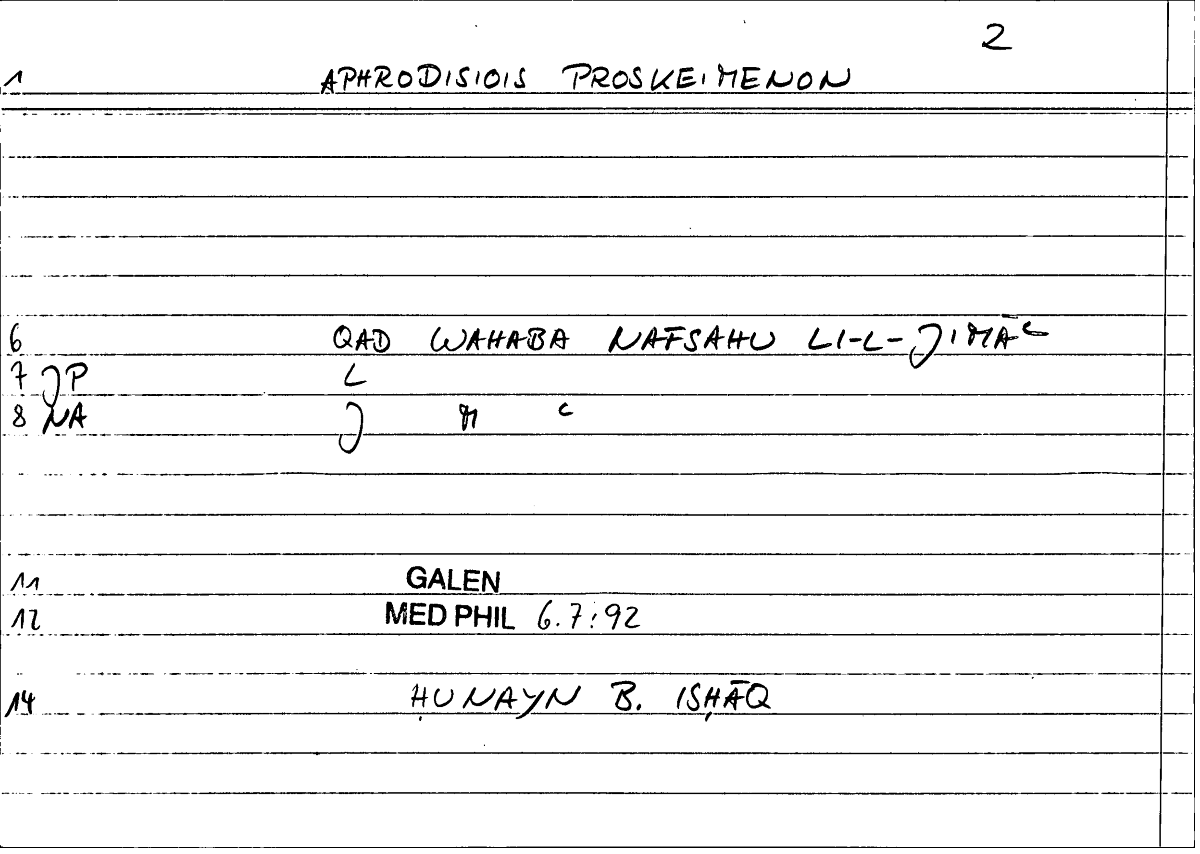 2
1 APHRODISIOIS PROSKEIMENON
6 QAD WAHABA NAFSAHU LI-L-JIMĀʿ
7 JP L
8 NA J M ʿ
11 GALEN
12 MED PHIL 6.7:92
14 ḤUNAYN B. ISḤĀQ